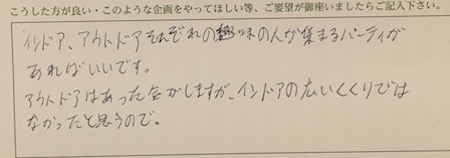 こうした方が良い・このような企画をやってほしい等、ご要望が御座いましたらご記入下さい。
インドア、アウトドアそれぞれの趣味の人が集まるパーティが
あればいいです。
アウトドアはあった気がしますが、インドアの広いくくりでは
なかったと思うので。